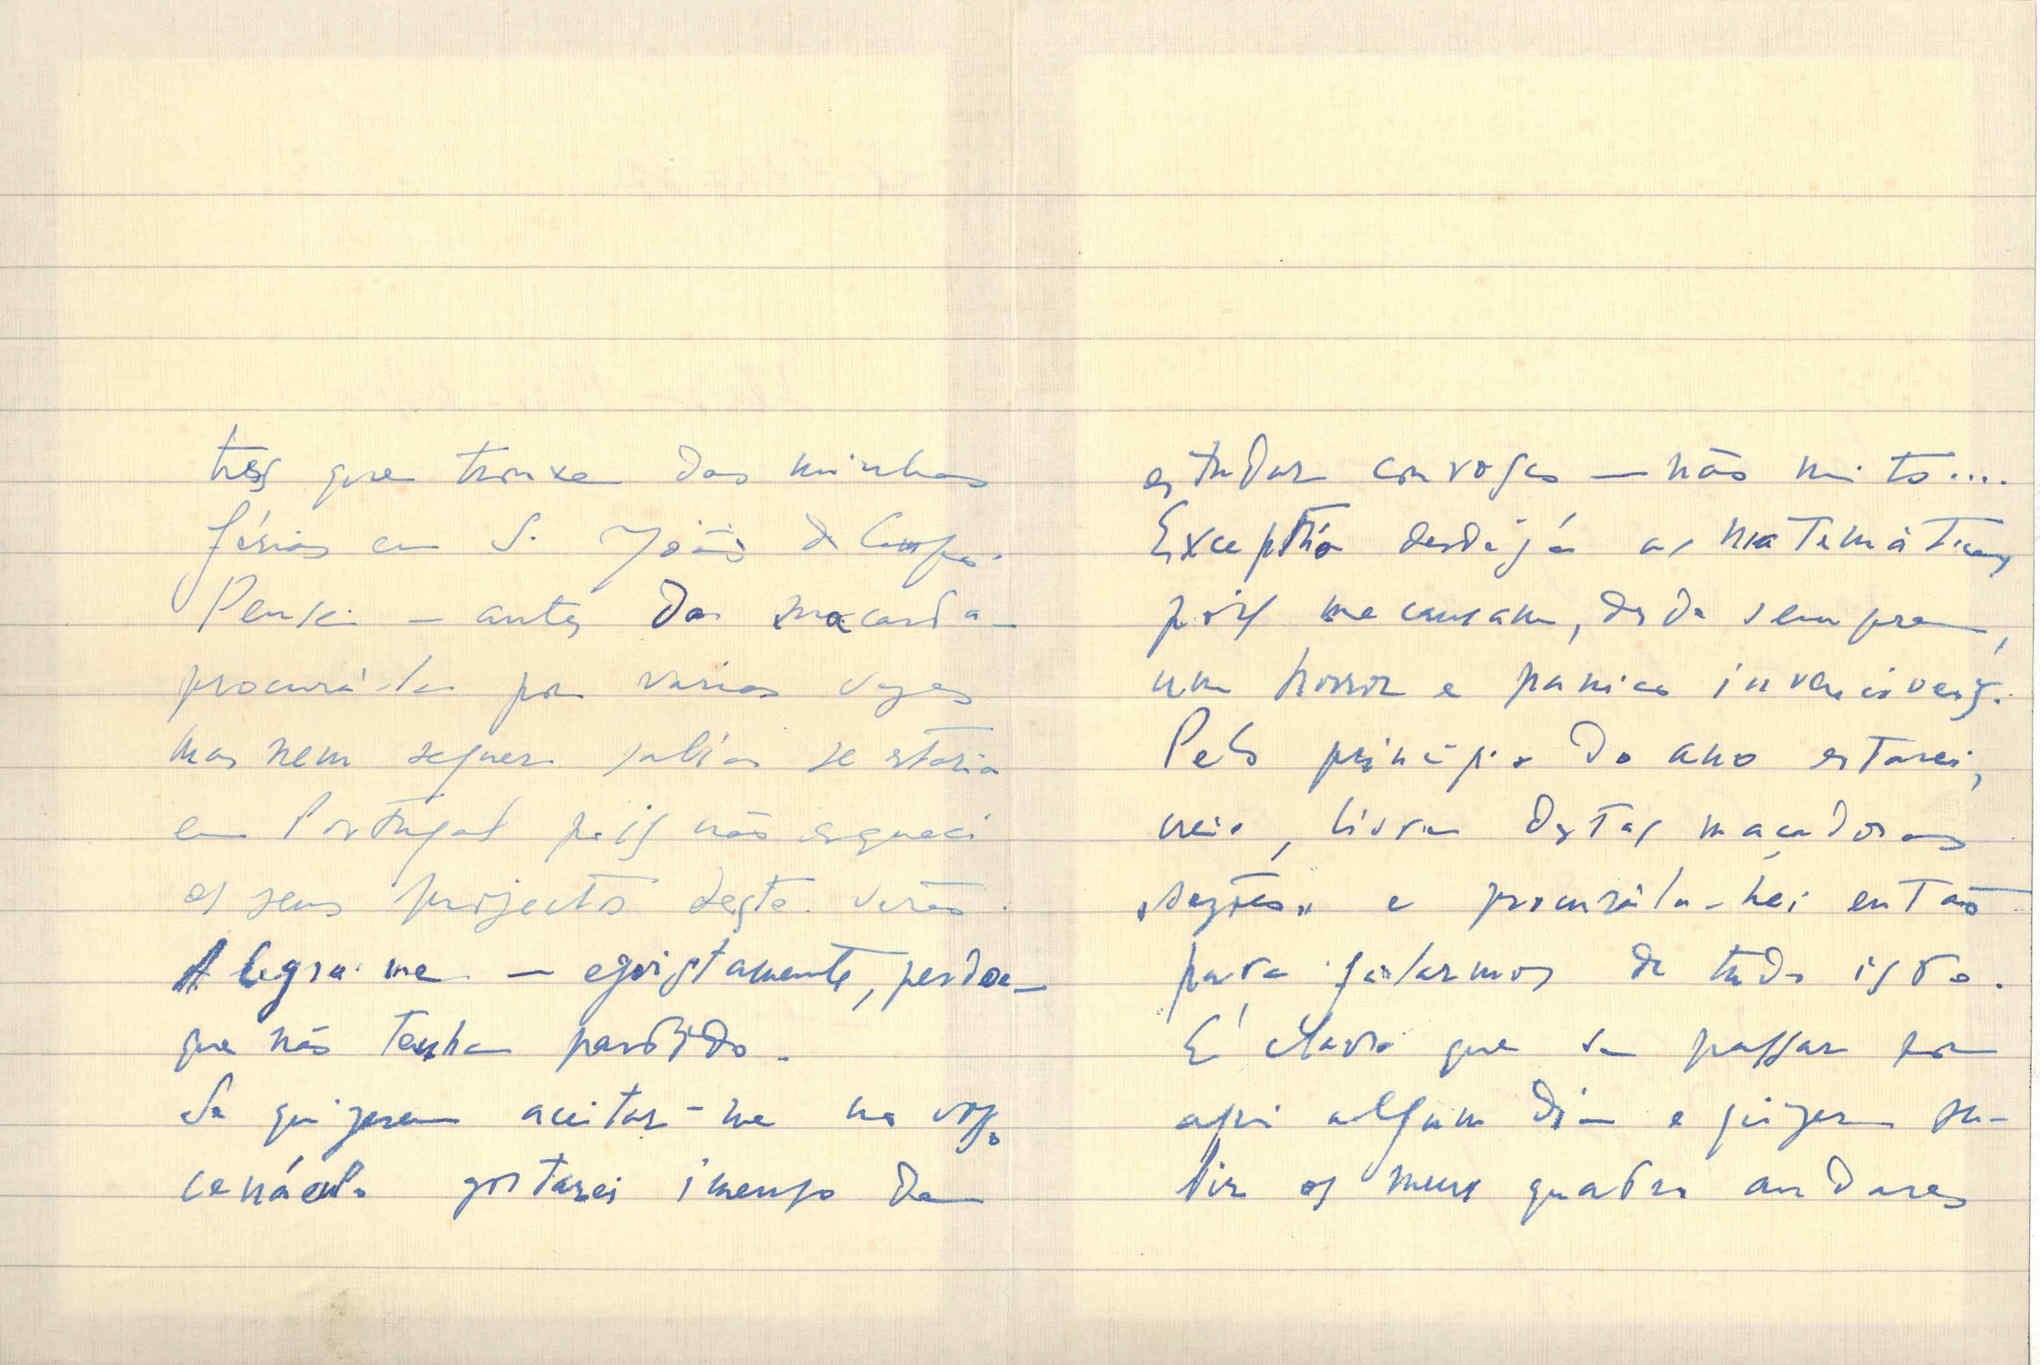 três que trouxe das minhas
férias em S. João do Campo.
Pensei — antes da macacada —
procurá-la por varias vezes
mas nem sequer sabia se estaria
em Portugal pois não esqueci
os seus projectos deste verão.
Alegra-me — egoistamente, perdoe —
que não tenha partido.
Se quizerem aceitar-me no vosso
cenáculo gostarei imenso de
estudar convosco — não mito....
Exceptúo desde já as matemáticas
pois me causam, desde sempre,
um horror e panico invenciveis.
Pelo princípio do ano estarei,
creio, livre destas maçadoras
"sezões" e procurála-hei então
para falarmos de tudo isto.
É claro que se passar por
aqui algum dia e quizer su-
bir os meus quatro andares